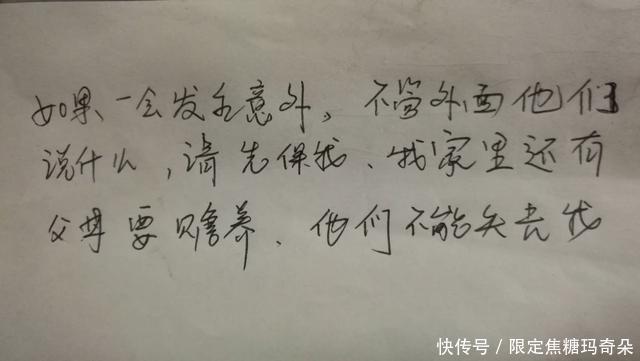 如果一会发生意外，不管外面他们
说什么，请先保我、我家里还有
父母要赡养、他们不能失去我
快传号/限定焦糖玛奇朵